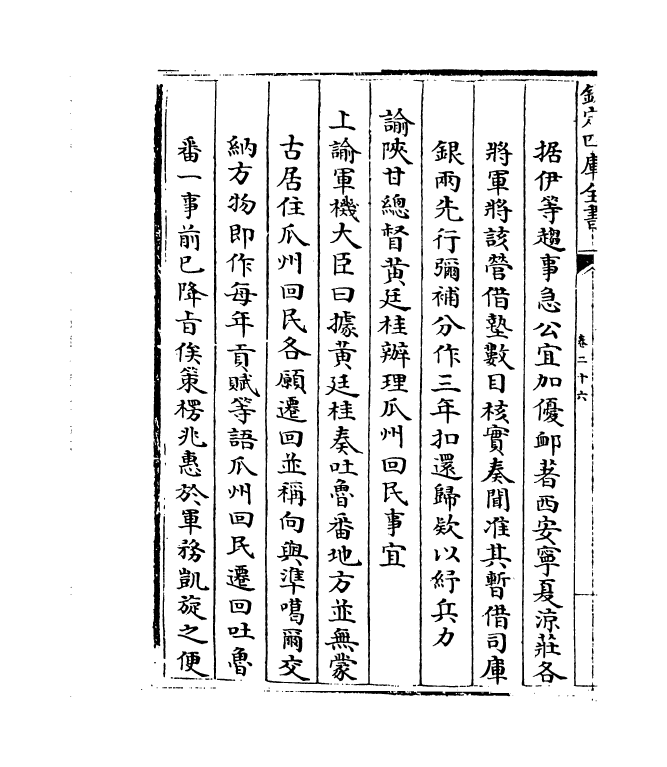 欽定四庫全書
卷二十六
据伊等趨事急公宜加優䘏著西安寧夏涼莊各
將軍將該營借墊數目核實奏聞准其暫借司庫
銀兩先行彌補分作三年扣還歸欵以紓兵力
諭陝甘總督黃廷桂辦理瓜州回民事宜
上諭軍機大臣曰據黃廷桂奏吐魯番地方並無蒙
古居住瓜州回民各願遷回並稱向與準噶爾交
納方物即作每年貢賦等語瓜州回民遷回吐魯
番一事前已降旨俟策楞兆惠於軍務凱旋之便